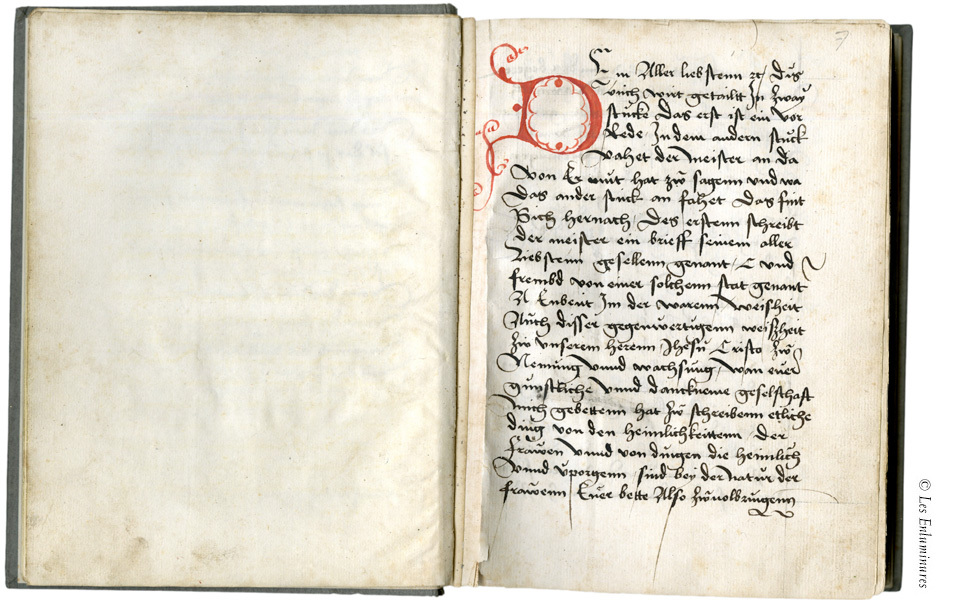 7
Dem Aller liebstenn etc / das
buch wirt getailtt In zway
stucke das erst ist ein vor
Rede In dem andern stuck
vahet der meister an da
von Er mut hat zů sagenn vnd wa
das ander stuck an fahet das fint
Sich hernach / Des erstenn schreibt
der meister ein brieff seinem aller
Liebstenn gesellenn genant / C vnd
frembd von einer solchenn stat genant
N Enbeut Im der warenn weisheit
Auch disser gegenwertigenn weißheit
zů vnserem herenn Jhesu Cristo zů
Nemung vnnd wachsung / wan euer
gunstliche vnnd danckneme geselschaft
mich gebettenn hat zů schreibenn etliche
ding von den heimlichkeittenn der
frawen vnnd von dingen die heimlich
vnnd vporgenn sind bey der natur der
frawenn Euer bette Also zů volbringenn
© Les Enluminures